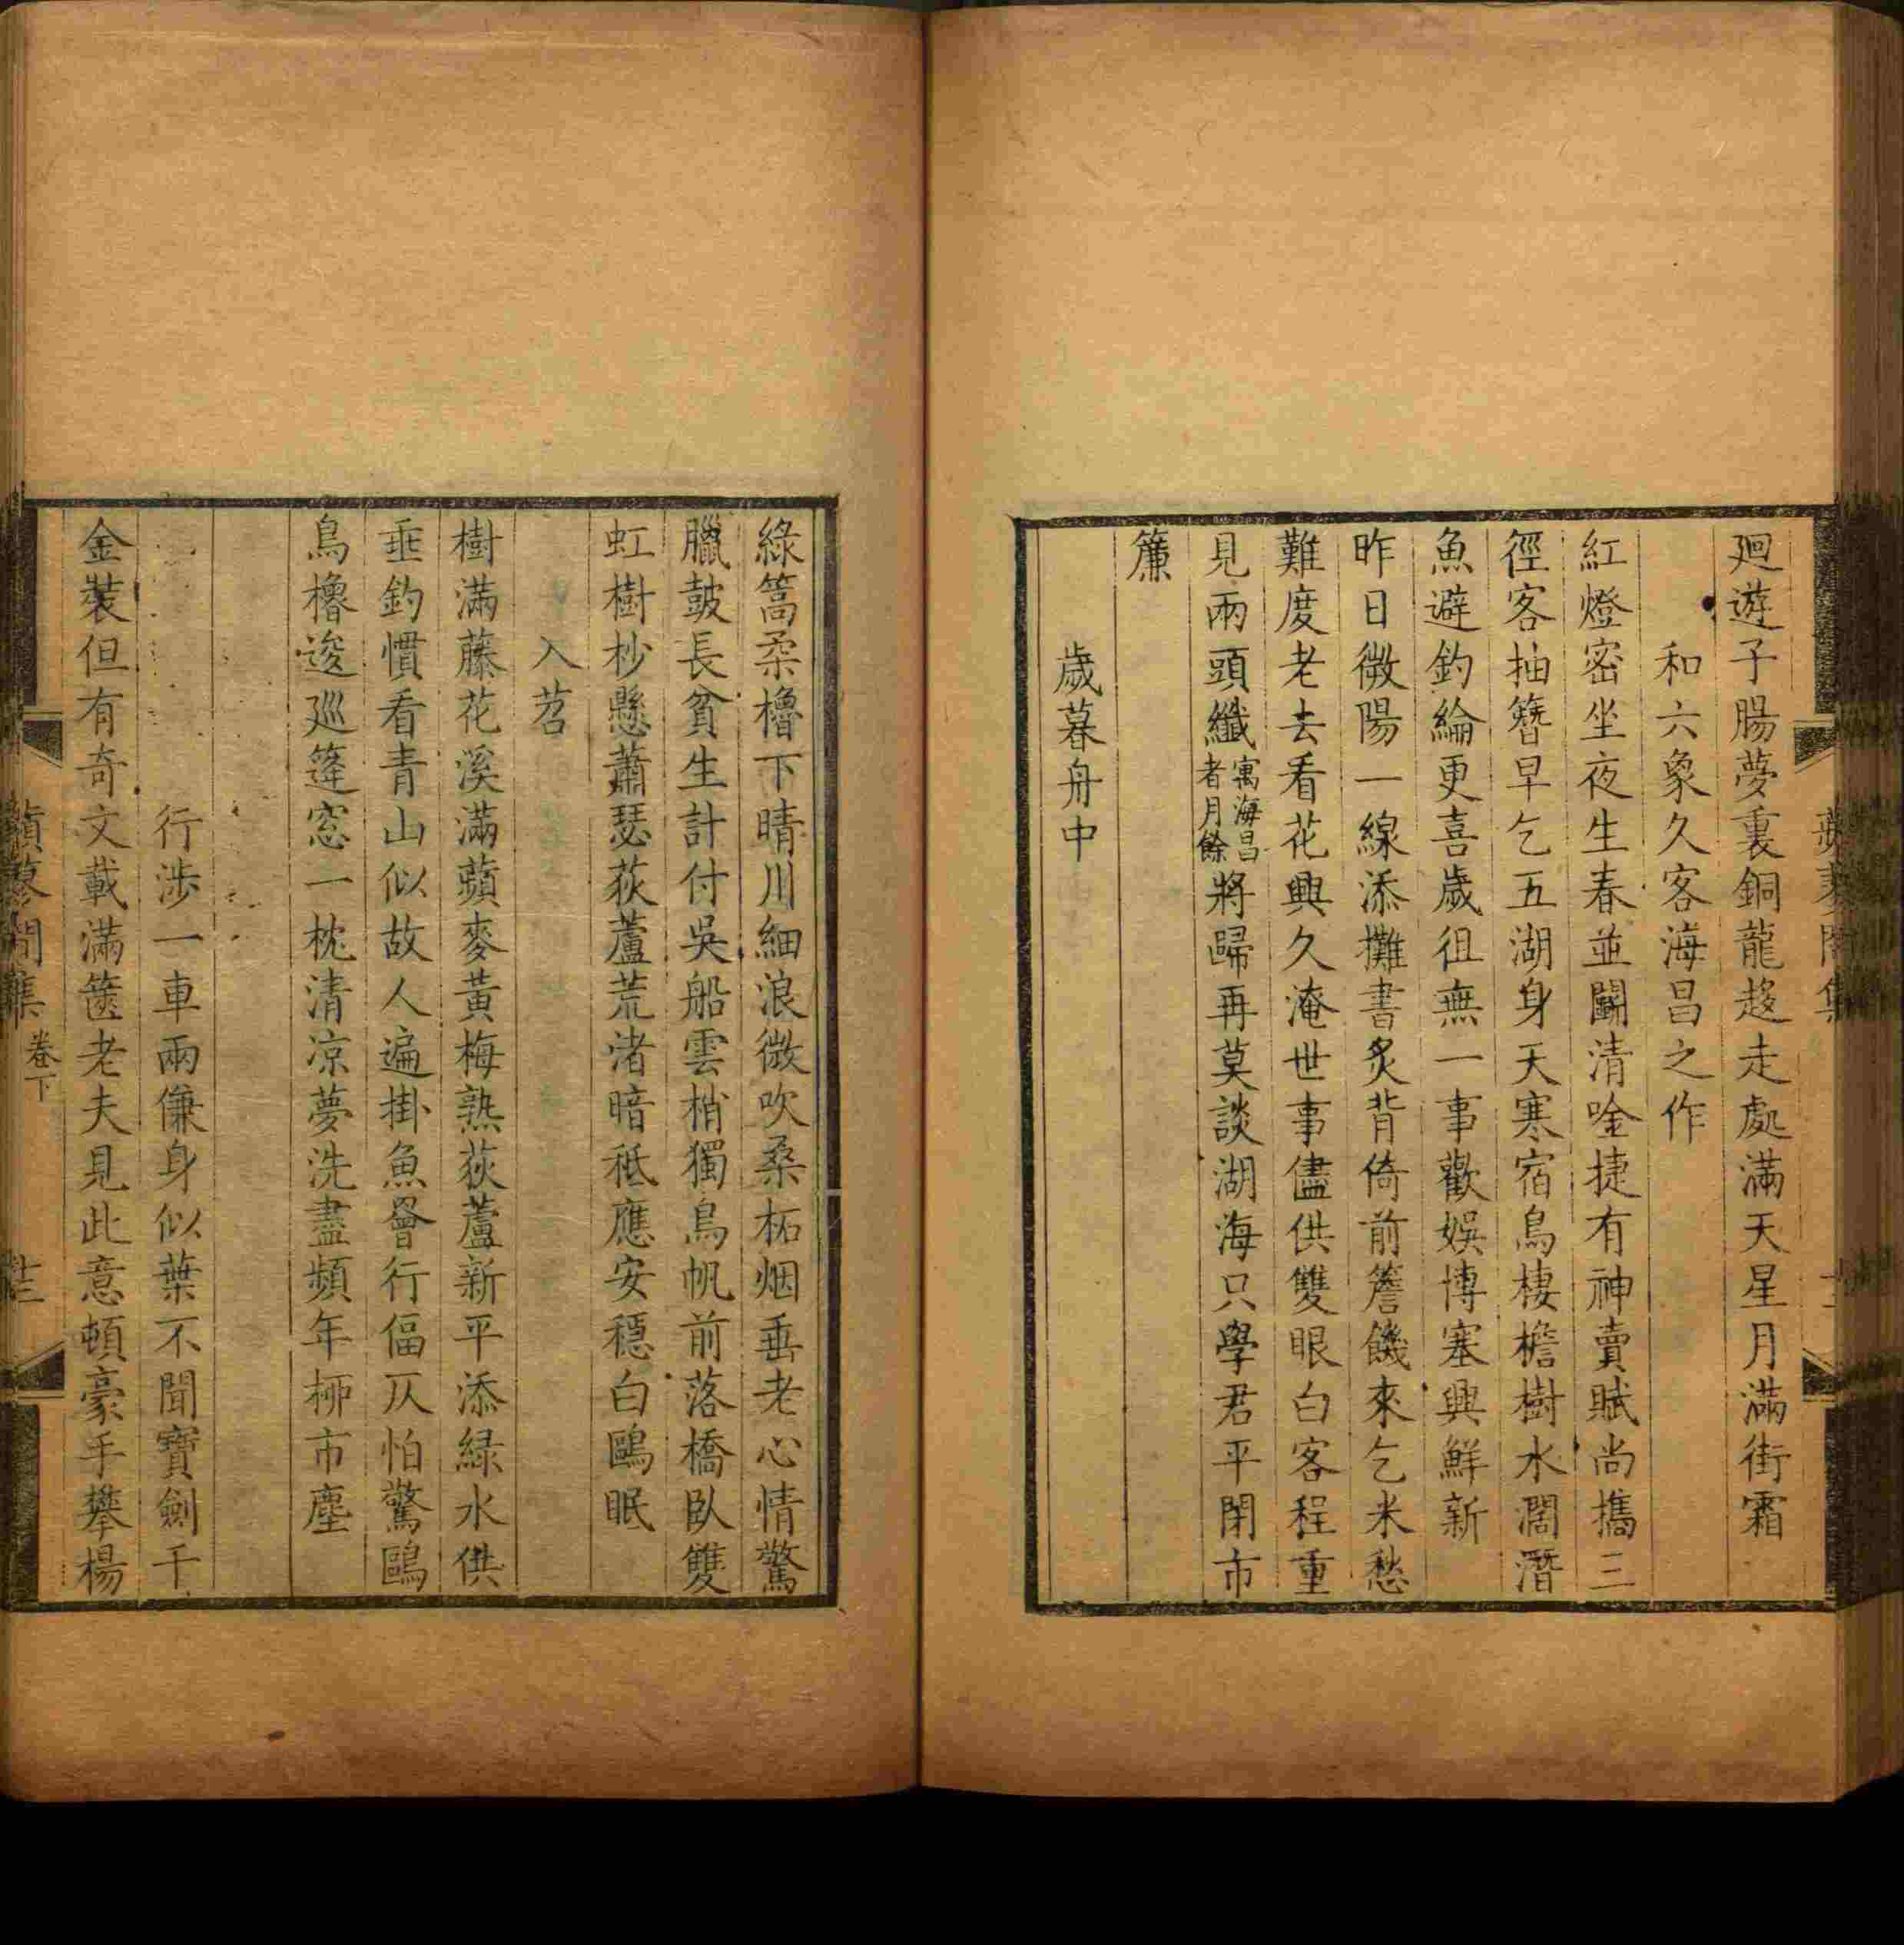 廻遊子腸夢裏銅龍趍走處滿天星月滿街霜
和六象久客海昌之作
紅燈密坐夜生春並鬬清唫捷有神賣賦尚攜三
徑客抽簪早乞五湖身天寒宿鳥棲檐樹水濶潛
魚避釣綸更喜歲徂無一事歡娛博塞興鮮新
昨日微陽一線添攤書炙背倚前簷饑來乞米愁
難度老去看花興久淹世事儘供雙眼白客程重
見兩頭纖寓海昌者月餘將歸再莫談湖海只學君平閉市
簾
歲暮舟中
綠篙柔櫓下晴川細浪微吹桑柘烟垂老心情驚
臘皷長貧生計付吳船雲梢獨鳥帆前落橋臥雙
虹樹杪懸蕭瑟荻蘆荒渚暗秪應安穩白鷗眠
入苕
樹滿藤花溪滿蘋麥黃梅熟荻蘆新平添緑水供
垂釣慣看青山似故人遍掛魚罾行偪仄怕驚鷗
鳥櫓逡廵篷窓一枕清凉夢洗盡頻年栁市塵
行涉一車兩傔身似葉不聞寶劍千
金裝但有奇文載滿篋老夫見此意頓豪手攀楊
蘋蓼閒集 卷下 廿三